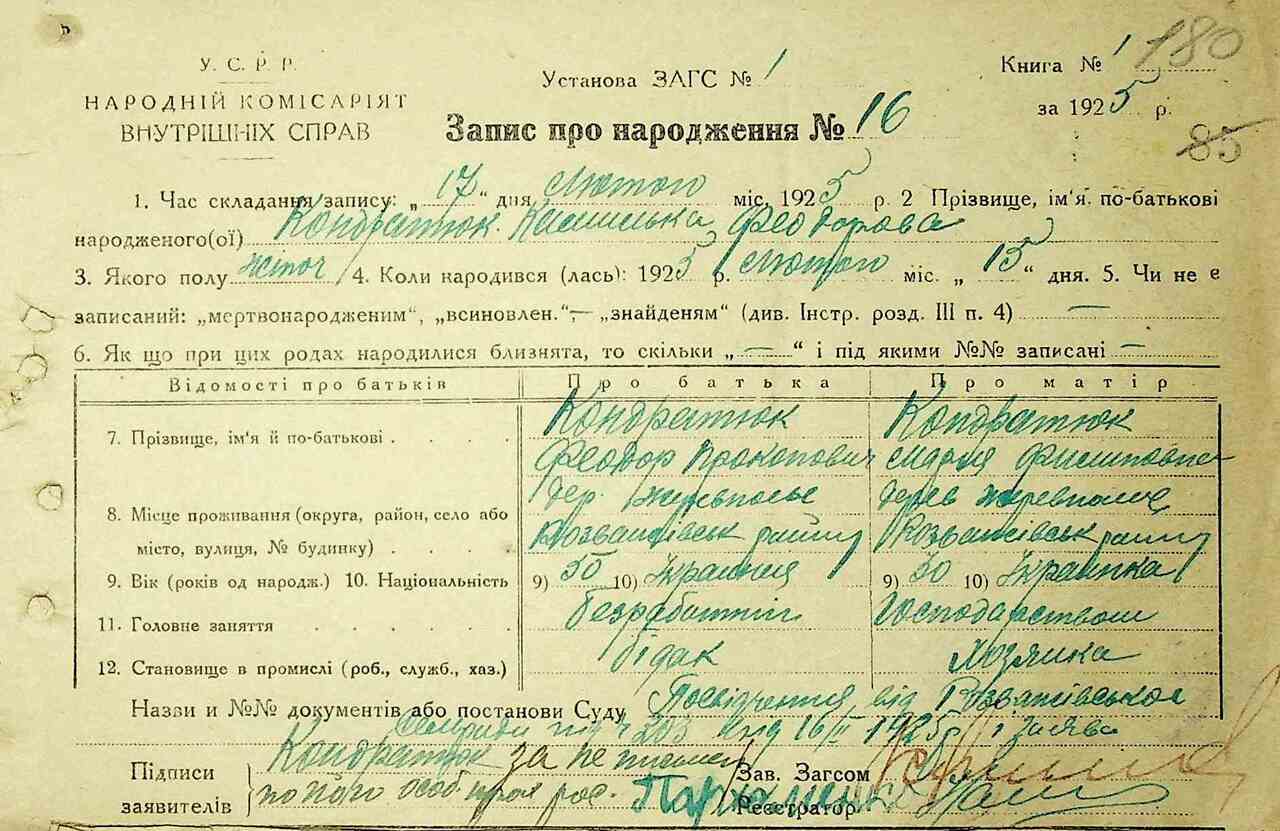 180
У. С. Р. Р.
НАРОДНІЙ КОМІСАРІЯТ
ВНУТРІШНІХ СПРАВ
Установа ЗАГС № 1
Книга № 1
за 1925 р.
Запис про народження № 16
85
1. Час складання запису: „17" дня Лютого міс. 1925 р. 2 Прізвище, ім'я. по-батькові
народженого(ої) Кондратюк Феодорова
3. Якого полу жіноч 4. Коли народився (лась): 1925 р. Лютого міс. „15" дня. 5. Чи не є
записаний: „мертвонародженим", „всиновлен.", — „знайденям" (див. Інстр. розд. III п. 4) —
6. Як що при цих родах народилися близнята, то скільки „—" і під якими №№ записані —
Відомості про батьків Про батька Про матір
7. Прізвище, ім'я й по-батькові . . . . Кондратюк Кондратюк
Феодор Прокопович Мария Филиповна
8. Місце проживання (округа, район, село або дер. дерев
місто, вулиця, № будинку) . . . . район район
9. Вік (років од народж.) 10. Національність 9) 30 10) Украинец 9) 30 10) Українка
11. Головне заняття . . . . . . безработній Господарством
12. Становище в промислі (роб., служб., хаз.) бідак Хозяйка
Назви и №№ документів або постанови Суду Посвідчення від Розважівської
сельради № 203 від 16/II 1925р і заява
Підписи
заявителів
Кондратюк за не письмен
по його особ прох рос.
Зав. Загсом
Реєстратор